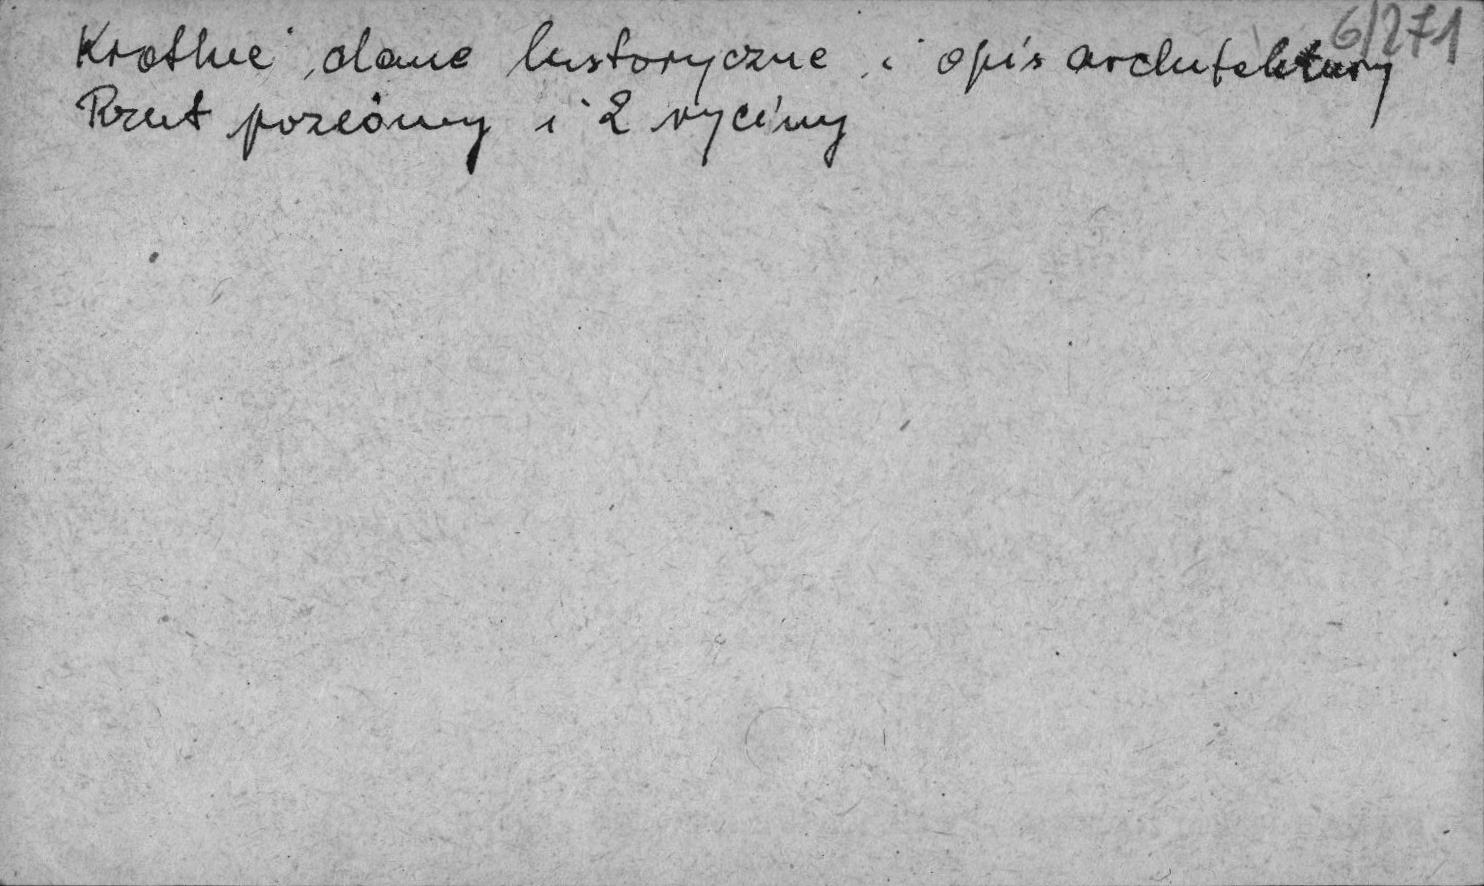 6/271
Krótkie dane historyczne i opis architektury
Rzut poziomy i 2 ryciny